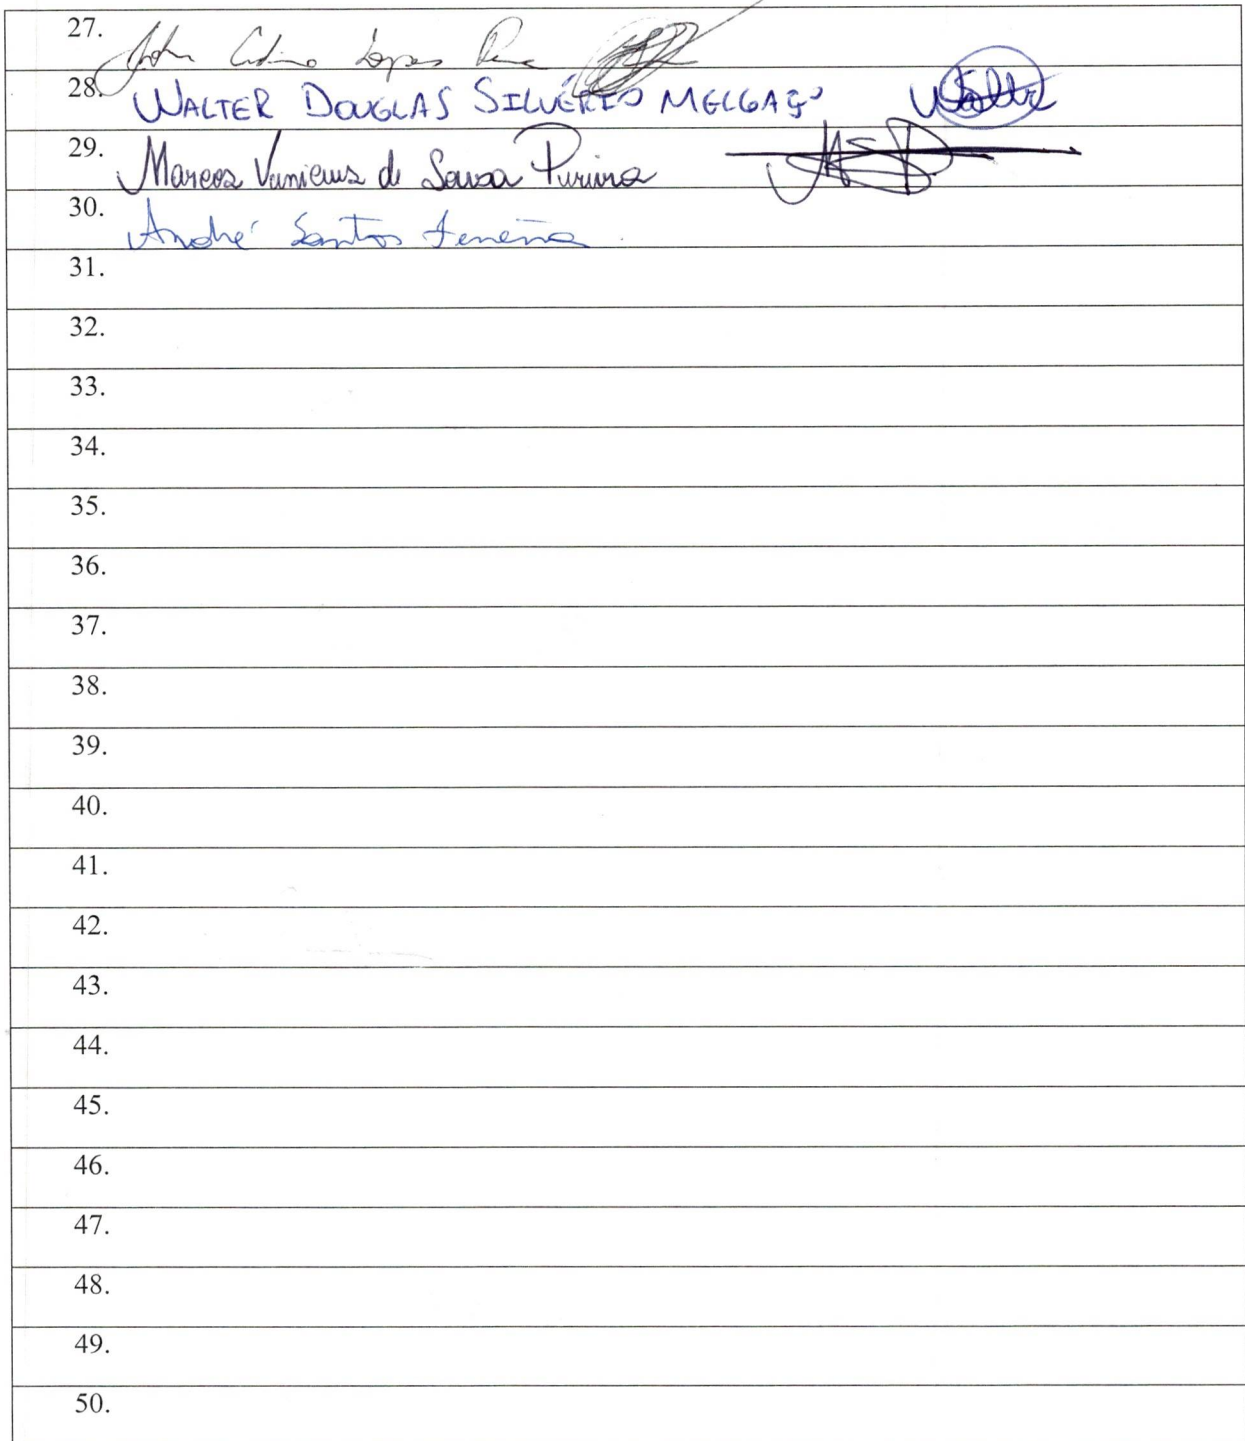 27. Lopes
28. WALTER DOUGLAS SILVÉRIO MELGAÇO
29. Marcos Vinicius de Sousa Pereira
30. André Santos Ferreira.
31.
32.
33.
34.
35.
36.
37.
38.
39.
40.
41.
42.
43.
44.
45.
46.
47.
48.
49.
50.